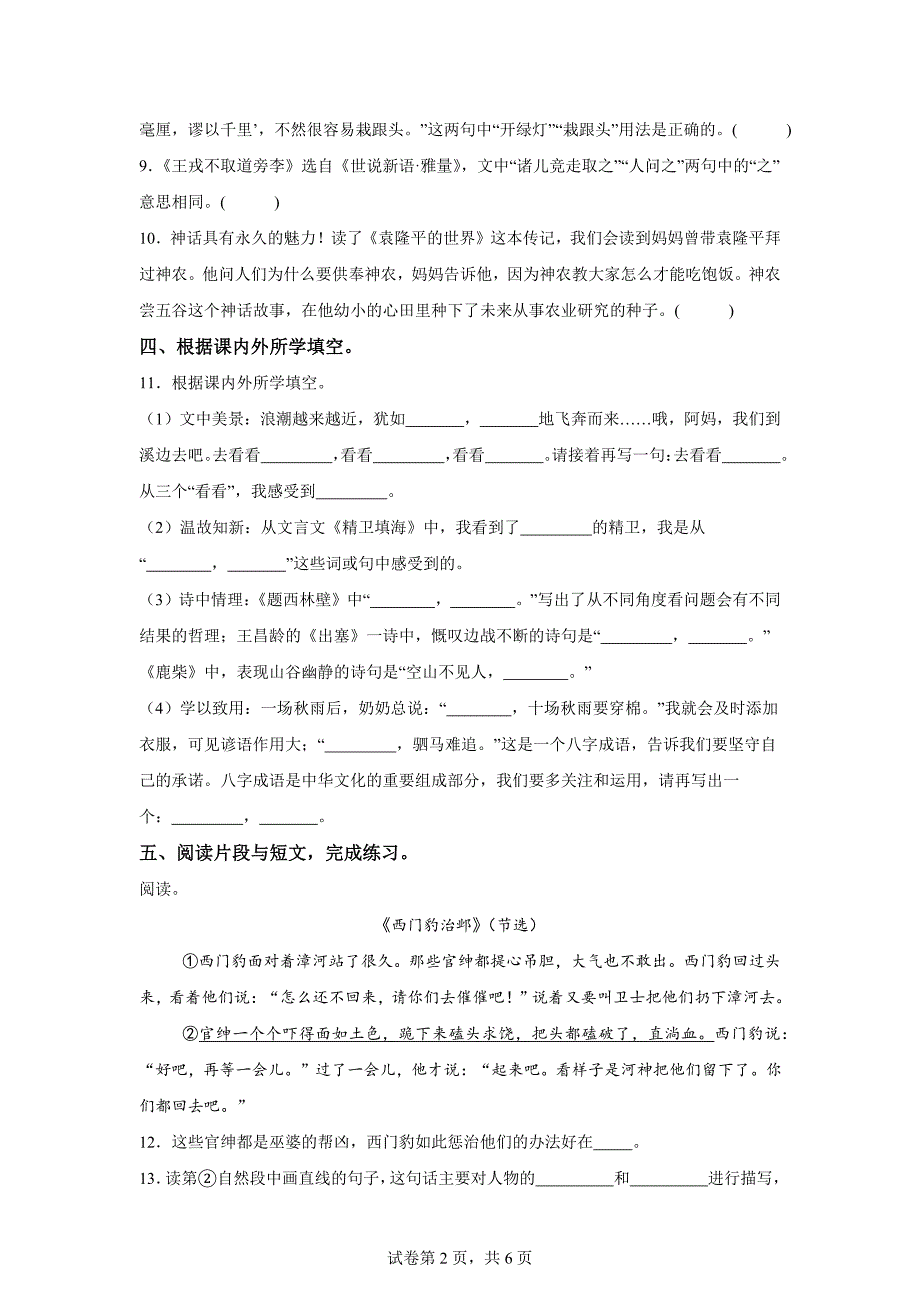 毫厘，谬以千里’，不然很容易栽跟头。”这两句中“开绿灯”“栽跟头”用法是正确的。(　　　)
9．《王戎不取道旁李》选自《世说新语·雅量》，文中“诸儿竞走取之”“人问之”两句中的“之”
意思相同。(　　　)
10．神话具有永久的魅力！读了《袁隆平的世界》这本传记，我们会读到妈妈曾带袁隆平拜
过神农。他问人们为什么要供奉神农，妈妈告诉他，因为神农教大家怎么才能吃饱饭。神农
尝五谷这个神话故事，在他幼小的心田里种下了未来从事农业研究的种子。(　　　)
四、根据课内外所学填空。
11．根据课内外所学填空。
（1）文中美景：浪潮越来越近，犹如_______，_______地飞奔而来……哦，阿妈，我们到
溪边去吧。去看看_________，看看_________，看看_______。请接着再写一句：去看看_______。
从三个“看看”，我感受到_________。
（2）温故知新：从文言文《精卫填海》中，我看到了_________的精卫，我是从
“________，_______”这些词或句中感受到的。
（3）诗中情理：《题西林壁》中“________，________。”写出了从不同角度看问题会有不同
结果的哲理；王昌龄的《出塞》一诗中，慨叹边战不断的诗句是“_________，_______。”
《鹿柴》中，表现山谷幽静的诗句是“空山不见人，________。”
（4）学以致用：一场秋雨后，奶奶总说：“________，十场秋雨要穿棉。”我就会及时添加
衣服，可见谚语作用大；“_________，驷马难追。”这是一个八字成语，告诉我们要坚守自
己的承诺。八字成语是中华文化的重要组成部分，我们要多关注和运用，请再写出一
个：_________，_______。
五、阅读片段与短文，完成练习。
阅读。
《西门豹治邺》（节选）
①西门豹面对着漳河站了很久。那些官绅都提心吊胆，大气也不敢出。西门豹回过头
来，看着他们说：“怎么还不回来，请你们去催催吧！”说着又要叫卫士把他们扔下漳河去。
②官绅一个个吓得面如土色，跪下来磕头求饶，把头都磕破了，直淌血。西门豹说：
“好吧，再等一会儿。”过了一会儿，他才说：“起来吧。看样子是河神把他们留下了。你
们都回去吧。”
12．这些官绅都是巫婆的帮凶，西门豹如此惩治他们的办法好在_____。
13．读第②自然段中画直线的句子，这句话主要对人物的__________和__________进行描写，
试卷第 2 页，共 6 页